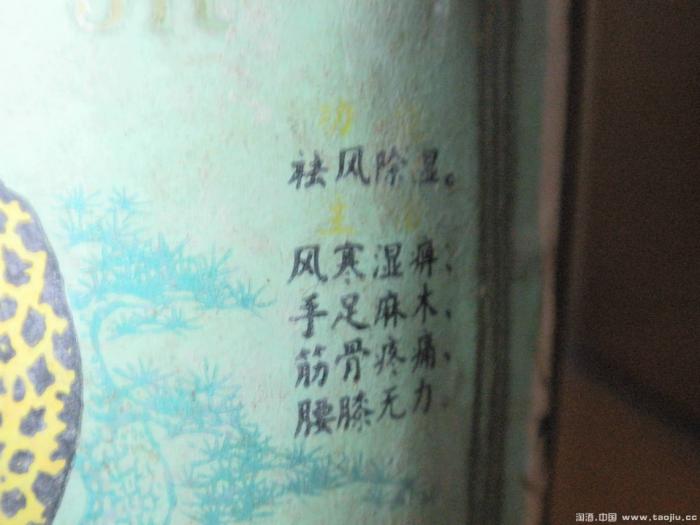 功
祛风除湿。
主
风寒湿痹、
手足麻木、
筋骨疼痛、
腰膝无力
淘酒.中国 www.taojiu.cc